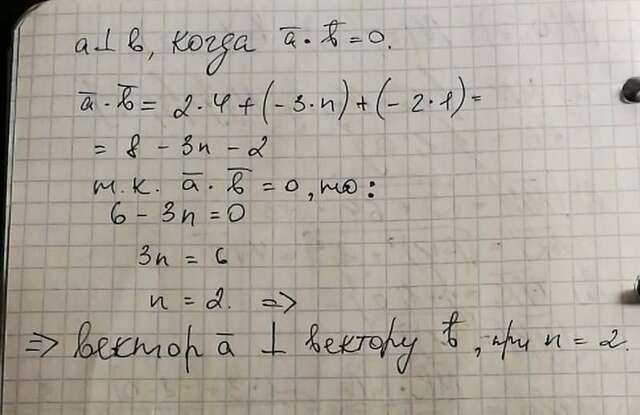 a ⊥ b, когда a̅ · b̅ = 0.
a̅ · b̅ = 2 · 4 + (-3 · n) + (-2 · 1) =
= 8 - 3n - 2
т. к. a̅ · b̅ = 0, то:
6 - 3n = 0
3n = 6
n = 2. =>
=> вектор a̅ ⊥ вектору b̅, при n = 2.